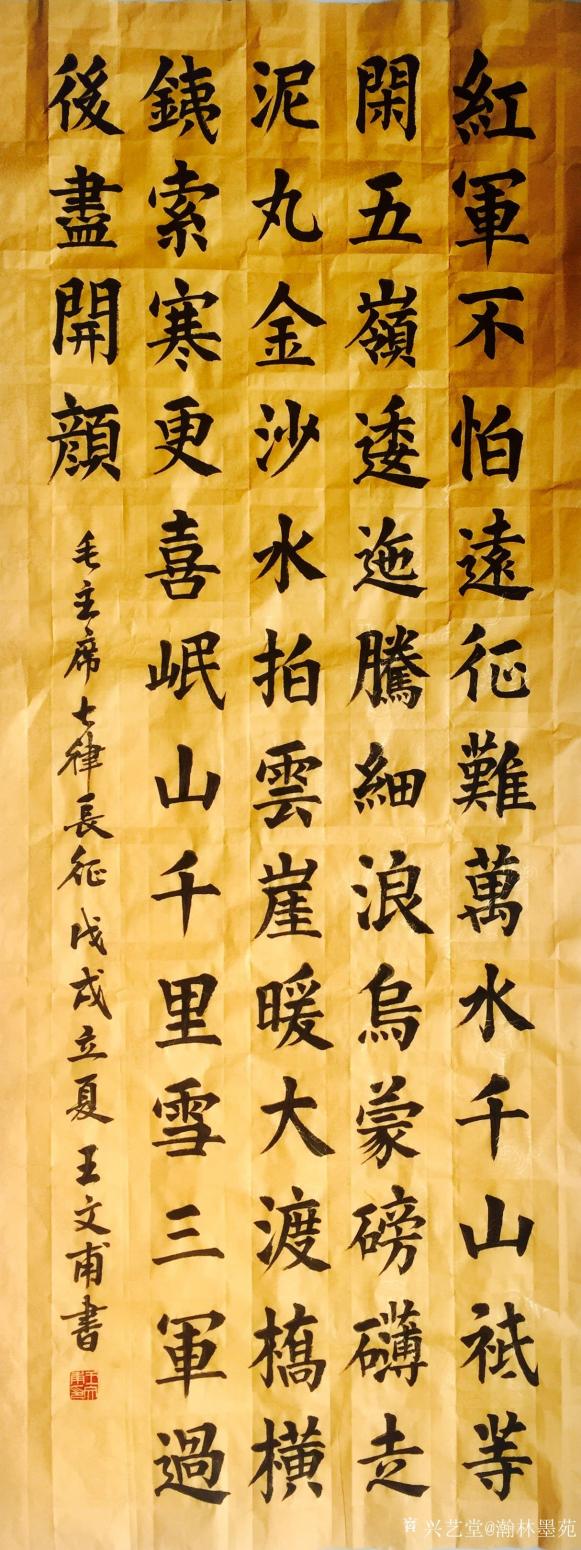 紅軍不怕遠征難萬水千山祗等
閑五嶺逶迤騰細浪烏蒙磅礴走
泥丸金沙水拍雲崖暖大渡橋橫
銕索寒更喜岷山千里雪三軍過
後盡開顔
毛主席七律長征 戊戌立夏 王文甫書
兴艺堂@瀚林墨苑